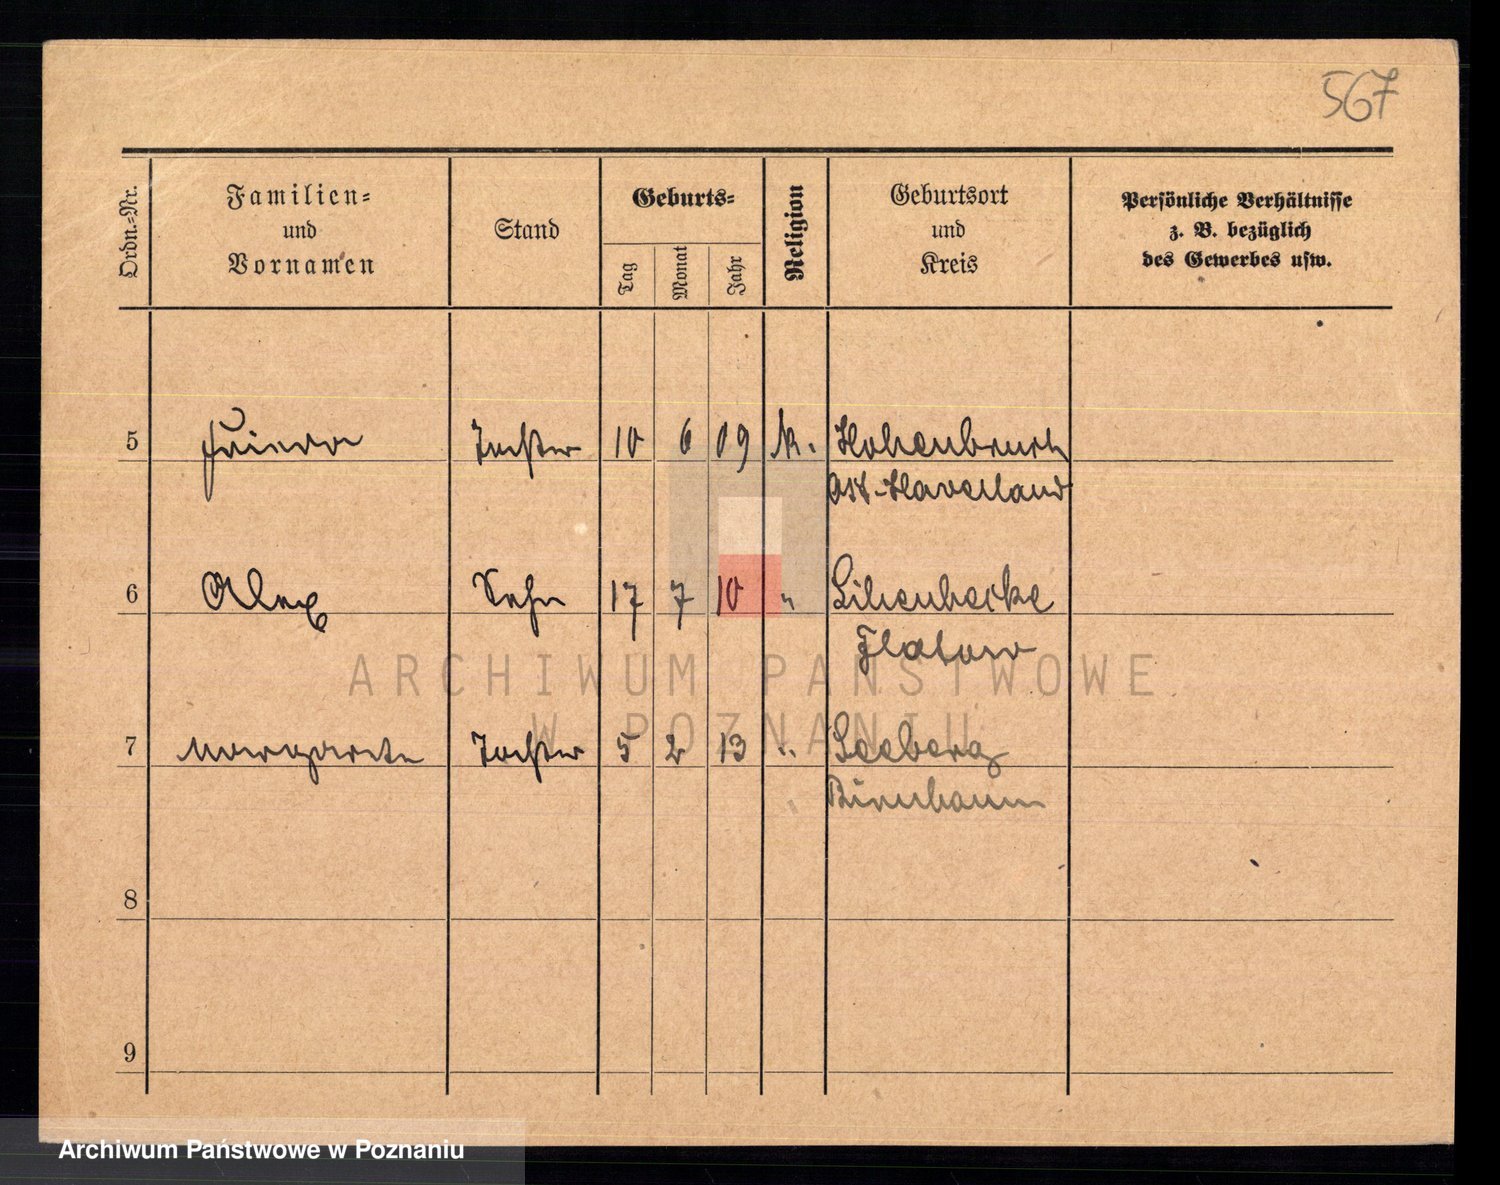 567
Ordn.-Nr.
Familien-
und
Vornamen
Stand
Geburts-
Tag
Monat
Jahr
Religion
Geburtsort
und
Kreis
Persönliche Verhältnisse
z. B. bezüglich
des Gewerbes usw.
5 Frieda Tochter 10 6 09 k. Hohenbruch
Ost-Havelland
6 Alex Sohn 17 7 10 " Lilienhecke
Flatow
7 Margarete Tochter 5 2 13 " Seeberg
Birnbaum
8
9
ARCHIWUM PAŃSTWOWE
W POZNANIU
Archiwum Państwowe w Poznaniu